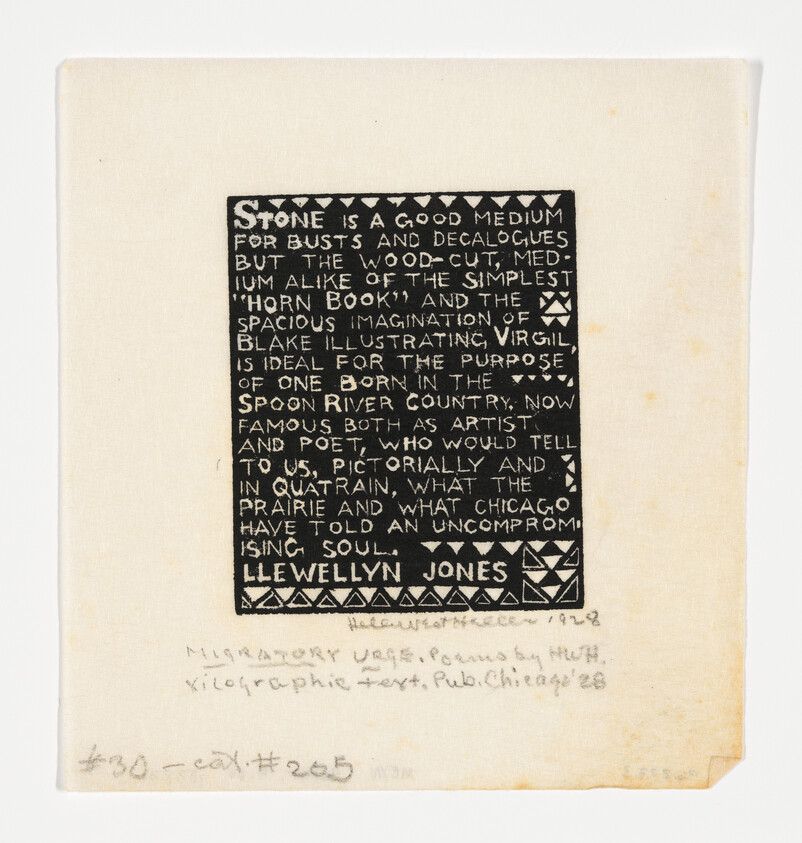 STONE IS A GOOD MEDIUM
FOR BUSTS AND DECALOGUES
BUT THE WOOD-CUT, MED-
IUM ALIKE OF THE SIMPLEST
"HORN BOOK" AND THE
SPACIOUS IMAGINATION OF
BLAKE ILLUSTRATING VIRGIL,
IS IDEAL FOR THE PURPOSE
OF ONE BORN IN THE
SPOON RIVER COUNTRY, NOW
FAMOUS BOTH AS ARTIST
AND POET, WHO WOULD TELL
TO US, PICTORIALLY AND
IN QUATRAIN, WHAT THE
PRAIRIE AND WHAT CHICAGO
HAVE TOLD AN UNCOMPROM-
ISING SOUL.
LLEWELLYN JONES
Helen West Heller 1928
MIGRATORY URGE. Poems by HWH.
xilographic text. Pub. Chicago '28
#30 - cat. #205